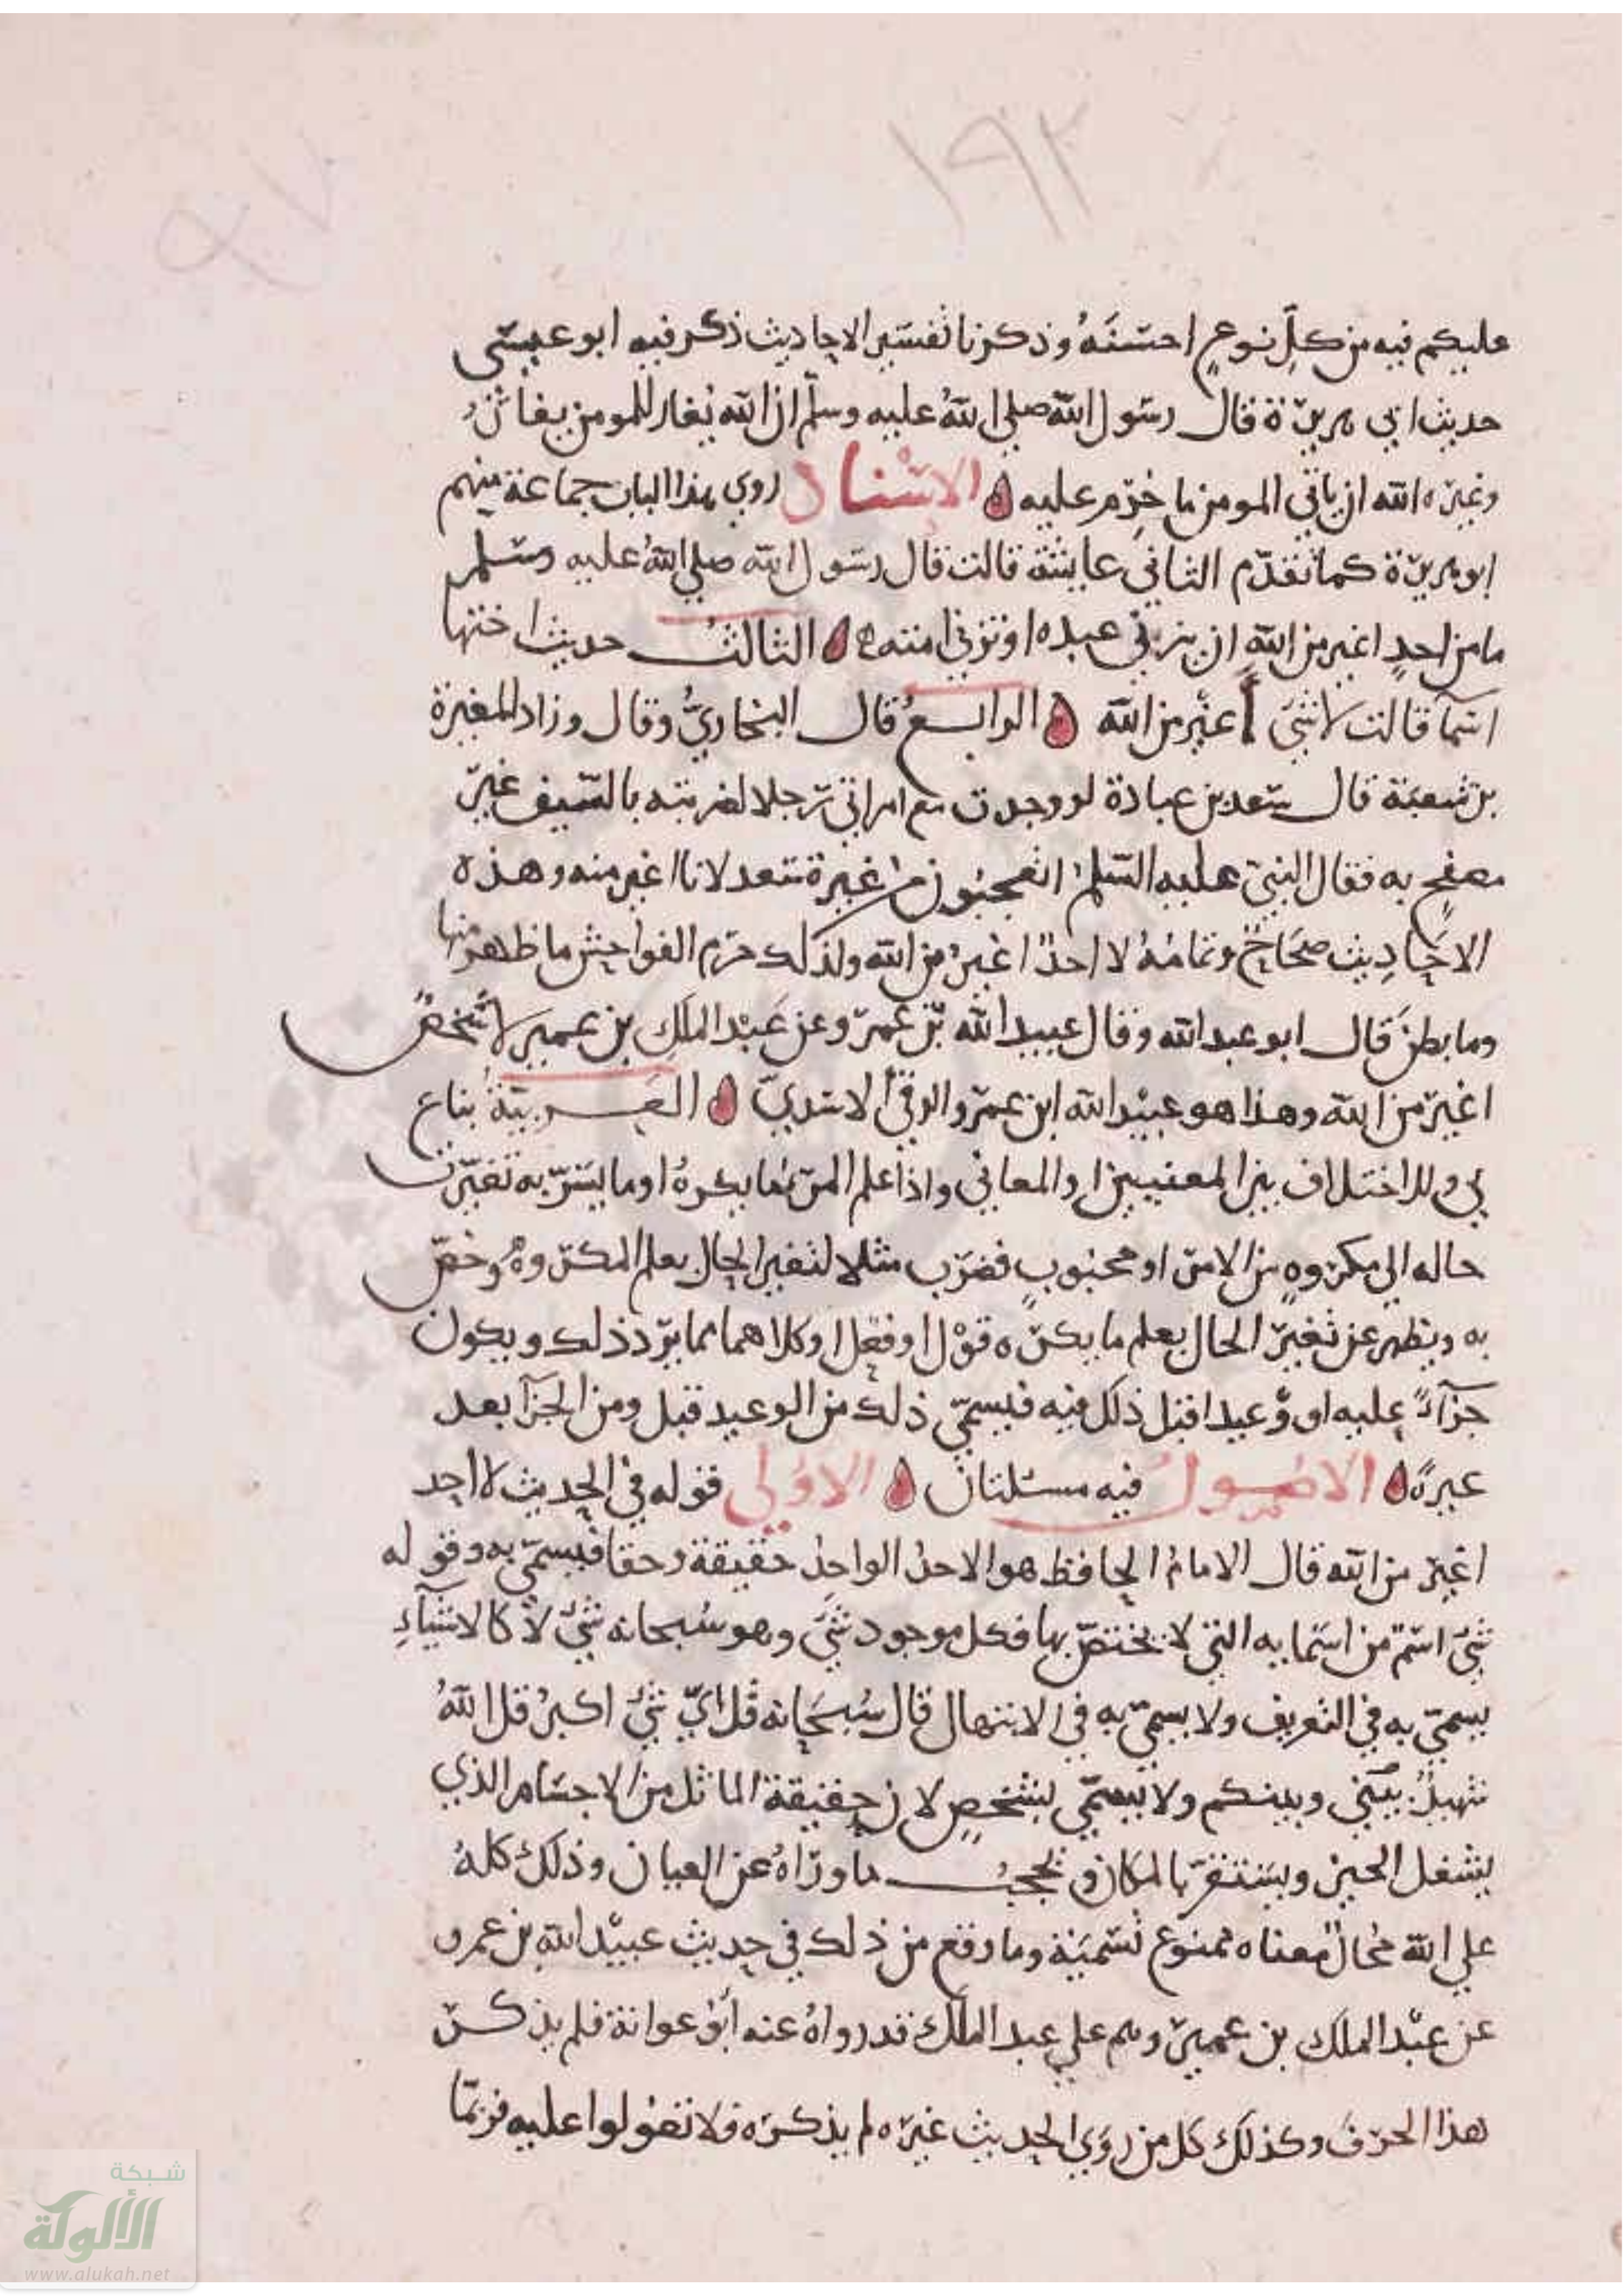 ١٩٢
٩٧
عليكم فيه من كلِّ نوعٍ احسَنَهُ وذكرنا تفسير الاحاديث ذكر فيه ابو عيسى
حديث ابي هريرة قال رسول الله صلى اللهُ عليه وسلّم ان الله يغار للمومن يغار
وغيره الله ان ياتي المومن ما حُرِّم عليه الاسْناد روي هذا الباب جماعة منهم
ابو هريرة كما تقدّم الثاني عايشة قالت قال رسول الله صلى اللهُ عليه وسلم
ما من احدٍ اغير من اللهِ ان يزني عبده او تزني امته الثالثُ حديث اختها
اسمآ قالت لا شيَ أغيَر من الله الرابعُ قال البخاريُّ وقال وزاد المغيرة
بن شعبة قال سعد بن عبادة لو وجدت مع امراتي رجلا لضربته بالسّيف غيرَ
مصفحٍ به فقال النبيّ عليه السّلم اتعجبون من غيرة سعد لانا اغير منه وهذه
الاحَادِيث صحَاحٌ وتمامُهُ لا احدٌ اغيرُ من الله ولذلك حرّم الفواحش ما ظهر منها
وما بطنَ قال ابو عبد الله وقال عبيد الله بْن عمرو عن عَبْد الملَكِ بن عمير لا شخصٌ
اغيَر من الله وهذا هو عبيْد الله ابن عمرو الرقيُّ الاسديّ العَربيَّةُ بناع
ي ر للاختلاف بين المعنيين او المعاني واذا علم المرء بما يكرهُ او ما يسَرّ به تغيّرت
حاله الي مكروهٍ من الامر او محبوبٍ فضرب مثلا لتغير الحال بعلم المكروهُ وخصّ
به ويظهر عن تغيّر الحال بعلم ما يكره قوْل او فعْل او كلاهما مما يردّ ذلك ويكون
جزآءً عليه او وعيدا قبل ذلك فيه فيسمّي ذلك من الوعيد قبل ومن الجزآ بعد
غيرةً الاصُول فيه مسئلتان الاوُلي قوله في الحديث لا احد
اغيَر من الله قال الامامُ الحافظ هو الاحدُ الواحدُ حقيقة وحقا فيسمّي به وقوله
شيَ اسمٌ من اسَمايه التي لا يختصّ بها فكل موجود شيَ وهو سُبحانه شيٌ لا كالاشيآءِ
يسمّي به في التعريف ولا يسمّي به في الابتهال قال سُبحَانه قُل ايّ شيَ اكبرُ قل اللهُ
شهيدٌ بيْني وبينكم ولا يسمّي بشَخصٍ لان حقيقة الماثل من الاجسَام الذي
يشغل الحيز ويسَتقرّ بالمكان ويحجبُ ما ورآاهُ عن العيان وذلك كلهُ
علي الله محالٌ معناه ممنوع تسْميَته وما وقع من ذلك في حديث عبيْد الله بن عمرو
عن عبْد الملَك بن عمير وهم علي عبد الملَك قد رواهُ عنه أبَوُ عوانة فلم يذكر
هذا الحرفَ وكذلَك كل من روَي الحديث غيره لم يذكره فلا تعوّلوا عليه فربمّا
شبكة
الألوكة
www.alukah.net